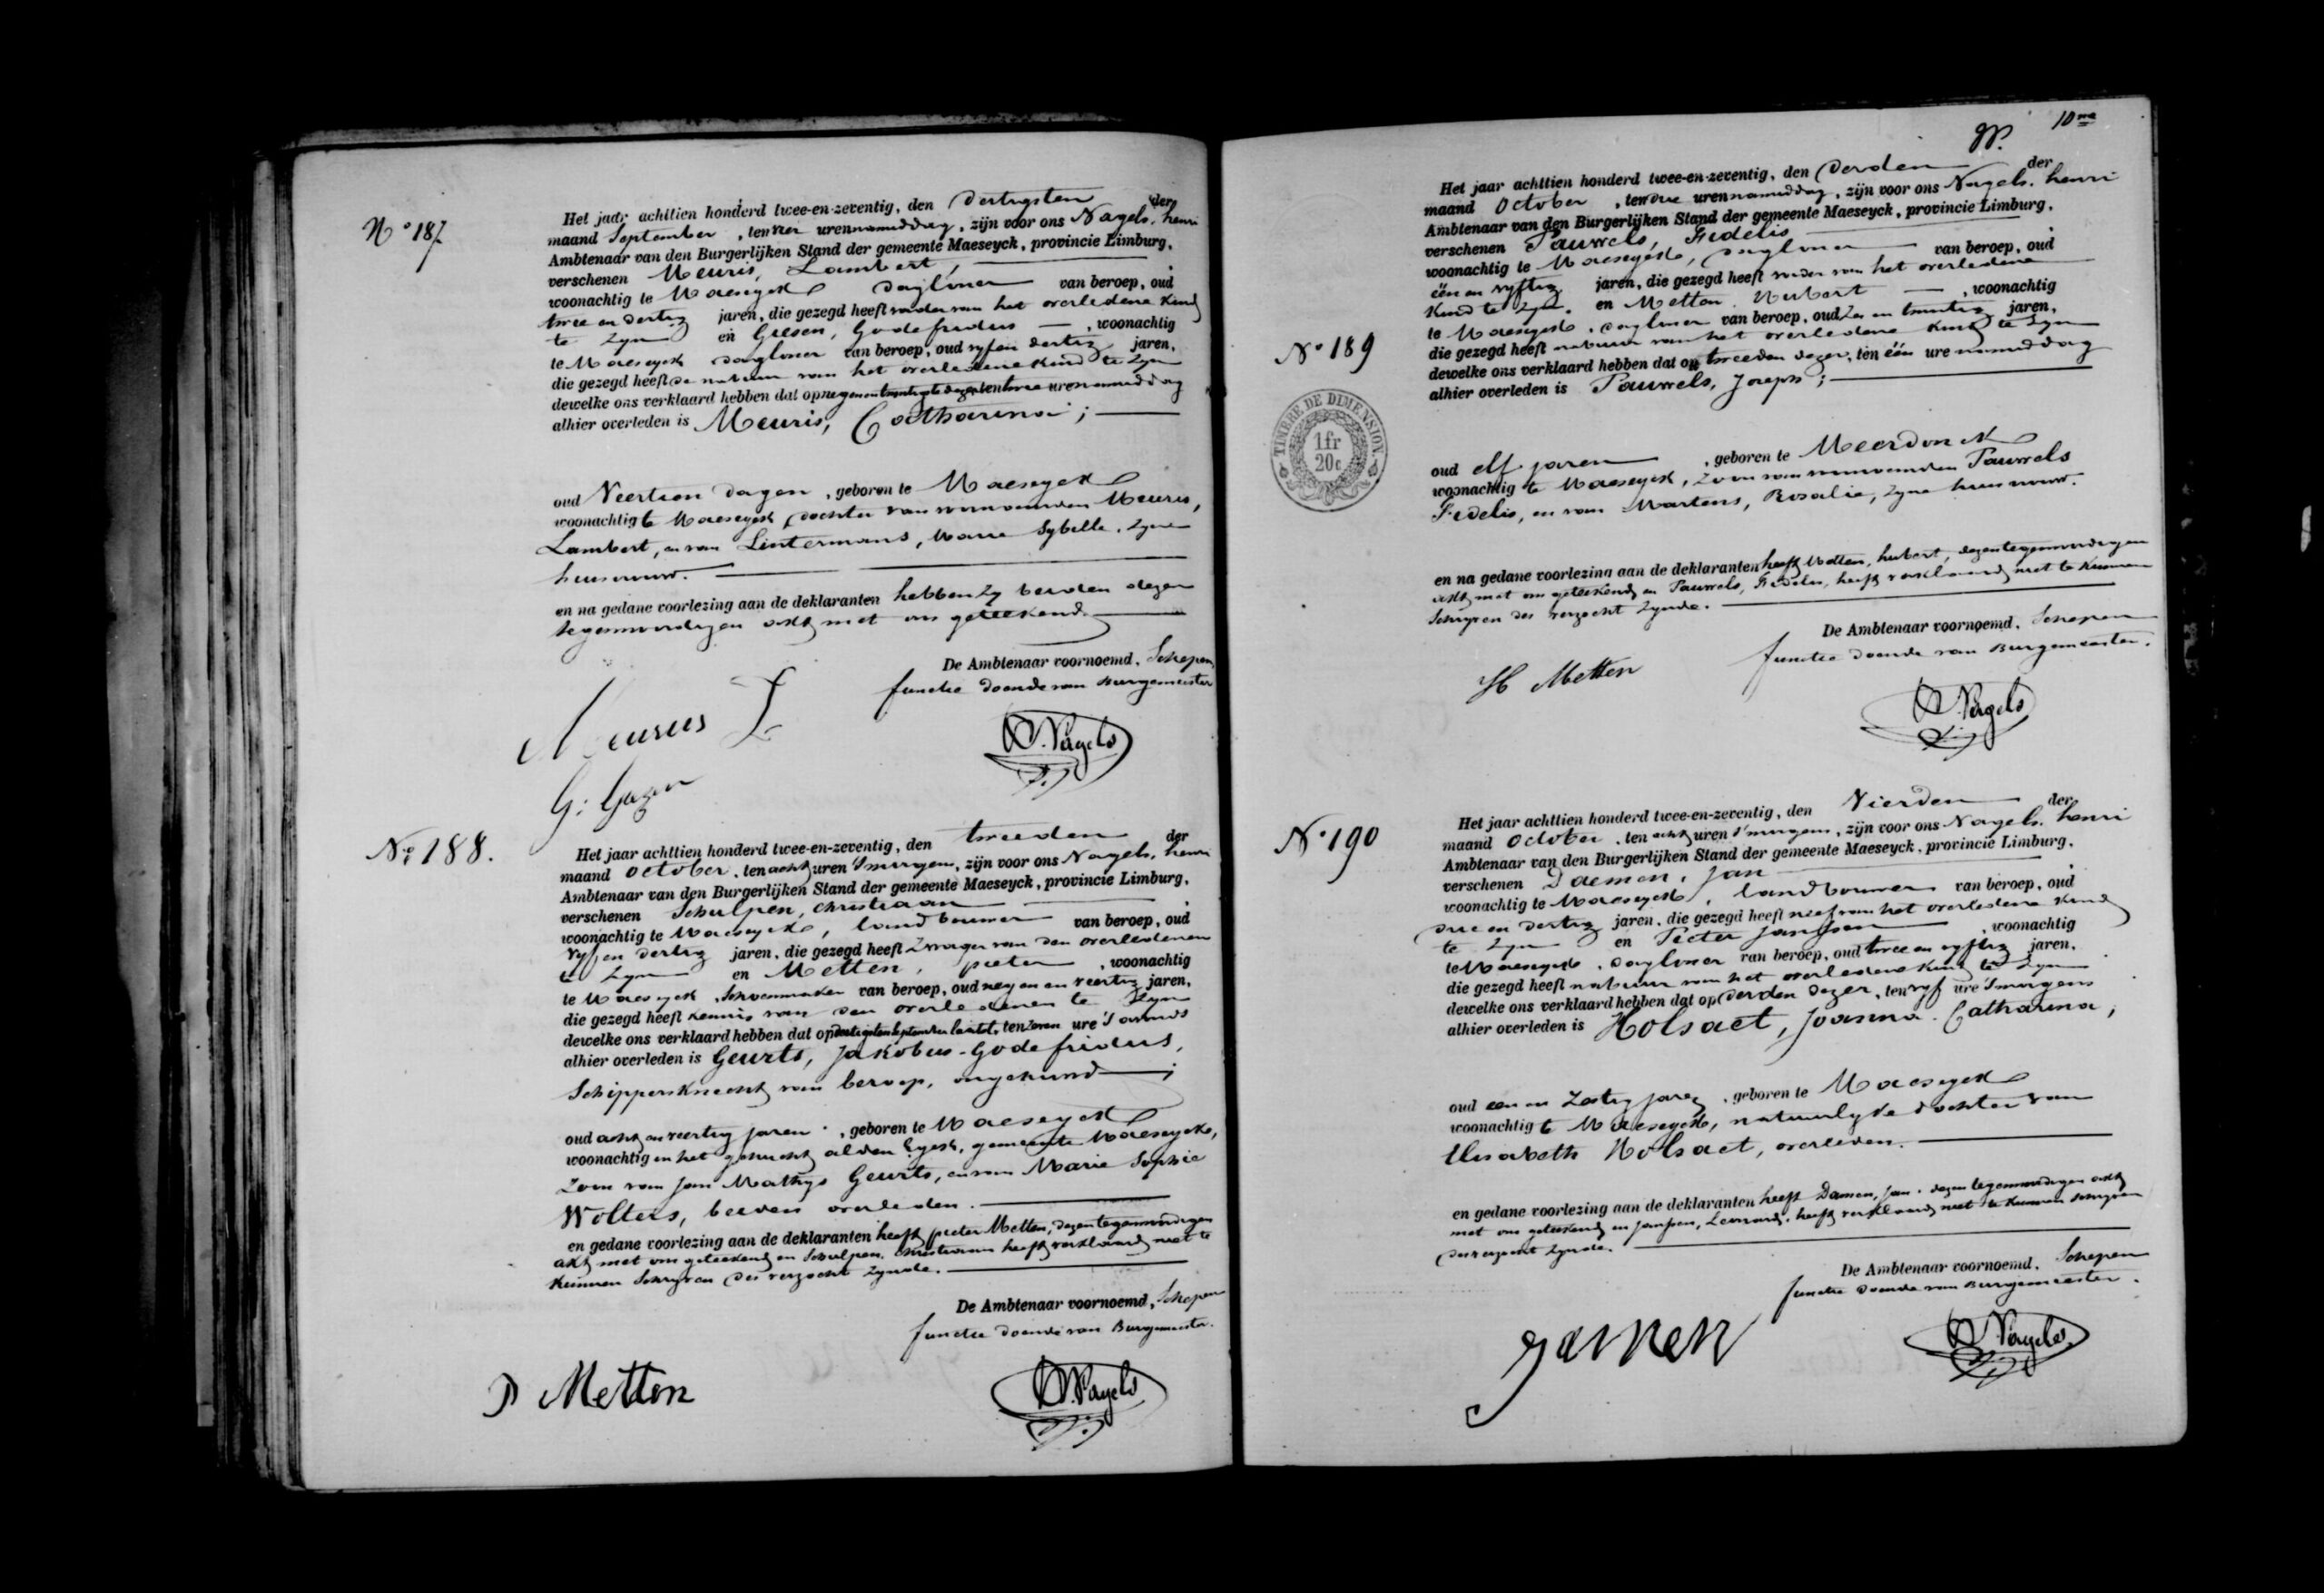 N° 187
Het jaar achttien honderd twee-en-zeventig, den Dertigsten der
maand September, ten vier uren namiddag, zijn voor ons Nagels, henri
Ambtenaar van den Burgerlijken Stand der gemeente Maeseyck, provincie Limburg,
verschenen Meuris, Lambert,
woonachtig te Maeseyck daglooner van beroep, oud
twee en dertig jaren, die gezegd heeft vader van het overledene Kind
te zyn en Giesen, Godefridus, woonachtig
te Maeseyck daglooner van beroep, oud vyf en dertig jaren,
die gezegd heeft de nabuur van het overledene Kind te zyn
dewelke ons verklaard hebben dat op negenentwintigste dezer ten twee uren namiddag
alhier overleden is Meuris, Catharina;
oud Veertien dagen, geboren te Maeseyck
woonachtig te Maeseyck, dochter van voornoemden Meuris,
Lambert, en van Lintermans, Marie Sybille, zyne
huisvrouw.
en na gedane voorlezing aan de deklaranten hebben zy beiden dezen
tegenwoordigen akt met ons geteekend.
De Ambtenaar voornoemd, Schepen,
functie doende van Burgemeester
Meuris L
G: Gazen
H. Nagels
N° 188.
Het jaar achttien honderd twee-en-zeventig, den tweeden der
maand October, ten acht uren 's morgens, zijn voor ons Nagels, henri
Ambtenaar van den Burgerlijken Stand der gemeente Maeseyck, provincie Limburg,
verschenen Schulpen, christiaan
woonachtig te Maeseyck, landbouwer van beroep, oud
vyf en dertig jaren, die gezegd heeft Zwager van den overledenen
te zyn en Metten, pieter, woonachtig
te Maeseyck, Schoenmaker van beroep, oud negen en veertig jaren,
die gezegd heeft kennis van den overledenen te zyn
dewelke ons verklaard hebben dat op dertigsten September laatst, ten zeven ure 's avonds
alhier overleden is Geurts, Jakobus-Godefridus,
Schippersknecht van beroep, ongehuwd;
oud acht en veertig jaren, geboren te Maeseyck
woonachtig in het gehucht alden Eyck, gemeente Maeseyck,
Zoon van Jan Mathys Geurts, en van Marie Sophie
Wolters, beiden overleden.
en gedane voorlezing aan de deklaranten heeft pieter Metten, dezen tegenwoordigen
akt met ons geteekend en Schulpen, christiaan heeft verklaard niet te
kunnen Schryven des verzocht zynde.
De Ambtenaar voornoemd, Schepen
functie doende van Burgemeester.
P Metten
H. Nagels
10me
N° 189
TIMBRE DE DIMENSION.
1fr
20c
Het jaar achttien honderd twee-en-zeventig, den Derden der
maand October, ten drie uren namiddag, zijn voor ons Nagels, henri
Ambtenaar van den Burgerlijken Stand der gemeente Maeseyck, provincie Limburg,
verschenen Pauwels, Fidelis
woonachtig te Maeseyck, daglooner van beroep, oud
één en vyftig jaren, die gezegd heeft vader van het overledene
Kind te zyn, en Metten Hubert, woonachtig
te Maeseyck, daglooner van beroep, oud Zes en twintig jaren,
die gezegd heeft nabuur van het overledene Kind te zyn
dewelke ons verklaard hebben dat op tweeden dezer, ten één ure namiddag
alhier overleden is Pauwels, Joseph;
oud elf jaren, geboren te Meerdonck
woonachtig te Maeseyck, Zoon van voornoemden Pauwels
Fidelis, en van Martens, Rosalie, zyne huisvrouw.
en na gedane voorlezing aan de deklaranten heeft Metten, hubert, dezen tegenwoordigen
akt met ons geteekend en Pauwels, Fidelis, heeft verklaard niet te Kunnen
Schryven des verzocht zynde.
De Ambtenaar voornoemd, Schepen
functie doende van Burgemeester.
H Metten
H. Nagels
N° 190
Het jaar achttien honderd twee-en-zeventig, den Vierden der
maand October, ten acht uren 's morgens, zijn voor ons Nagels, henri
Ambtenaar van den Burgerlijken Stand der gemeente Maeseyck, provincie Limburg,
verschenen Daemen, Jan
woonachtig te Maeseyck, landbouwer van beroep, oud
drie en dertig jaren, die gezegd heeft neef van het overledene Kind
te zyn en Pieter Janssen, woonachtig
te Maeseyck, daglooner van beroep, oud twee en vyftig jaren,
die gezegd heeft nabuur van het overledene Kind te zyn
dewelke ons verklaard hebben dat op derden dezer, ten vyf ure 's morgens
alhier overleden is Holsaet, Joanna-Catharina,
oud een en Zestig jaren, geboren te Maeseyck
woonachtig te Maeseyck, natuurlyke dochter van
Elisabeth Holsaet, overleden.
en gedane voorlezing aan de deklaranten heeft Damen, Jan, dezen tegenwoordigen akt
met ons geteekend en Janssen, Leonard, heeft verklaard niet te Kunnen schryven
des verzocht zynde.
De Ambtenaar voornoemd, Schepen
functie doende van Burgemeester.
H. Nagels